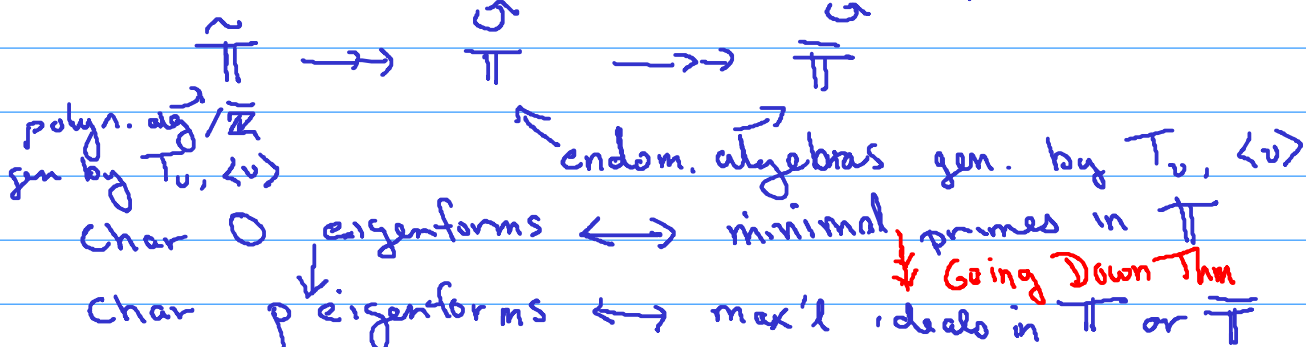 𝕋̃ ↠ 𝕋 ↠ 𝕋̄
polyn. alg / ℤ̄
gen by T_v, <v>
endom. algebras gen. by T_v, <v>
char 0 eigenforms ↔ minimal primes in 𝕋
Going Down Thm
char p eigenforms ↔ max'l ideals in 𝕋 or 𝕋̄